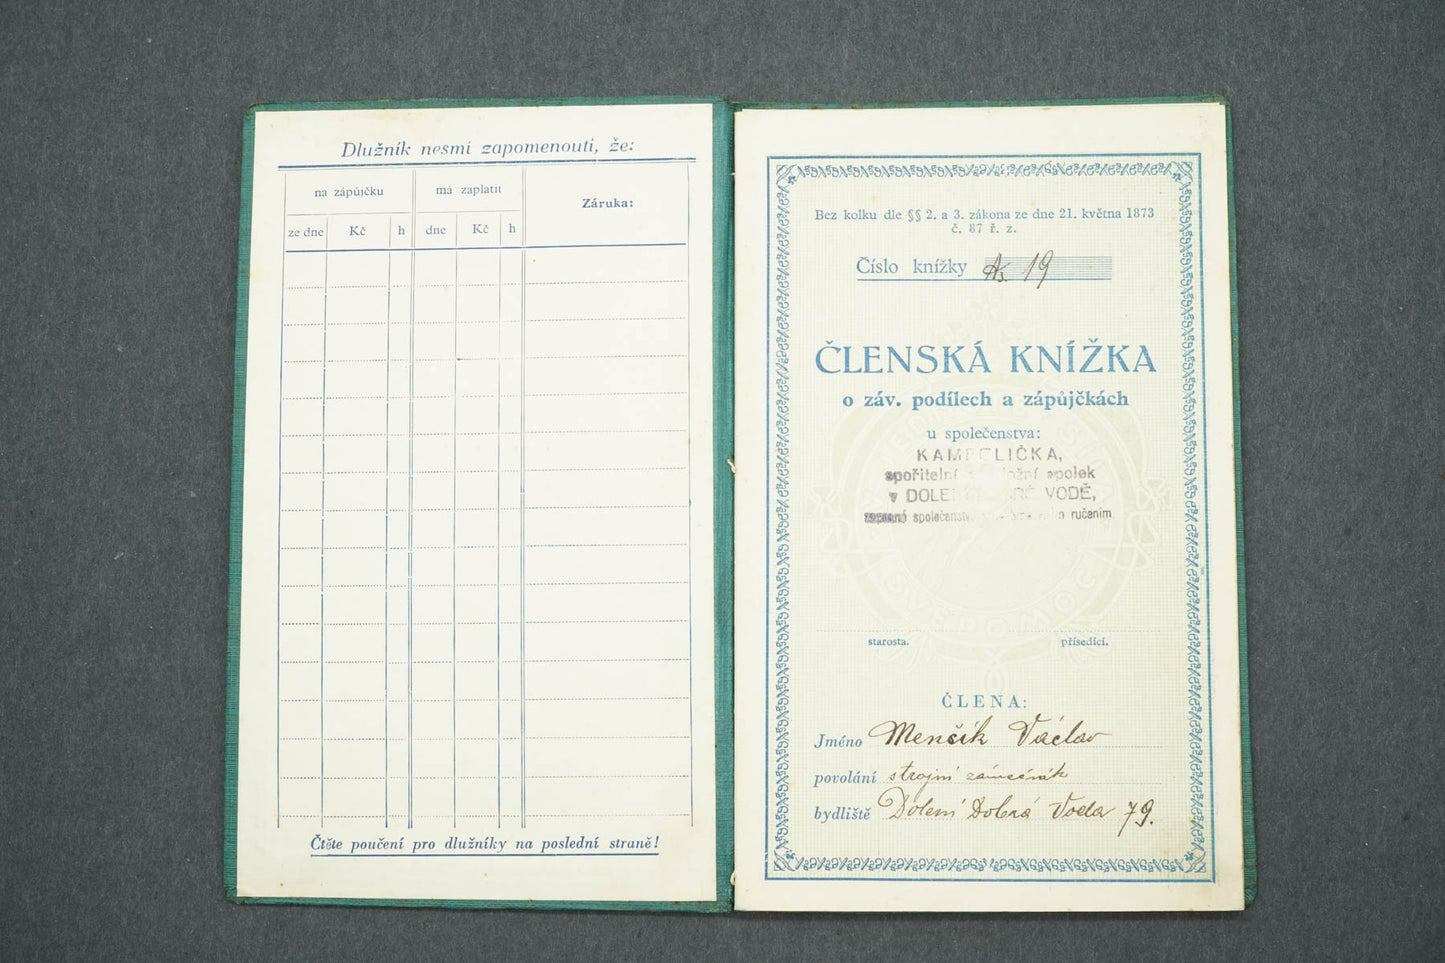 Dlužník nesmí zapomenouti, že:
na zápůjčku
má zaplatit
Záruka:
ze dne
Kč
h
dne
Kč
h
Čtěte poučení pro dlužníky na poslední straně!
Bez kolku dle §§ 2. a 3. zákona ze dne 21. května 1873
č. 87 ř. z.
Číslo knížky 19
ČLENSKÁ KNÍŽKA
o záv. podílech a zápůjčkách
u společenstva:
KAMPELIČKA,
spořitelní spolek
v DOLENÍ DOBRÉ VODĚ,
ručením
starosta.
přísedící.
ČLENA:
Jméno Menčík Václav
povolání strojní zámečník
bydliště Dolení Dobrá Voda 79.